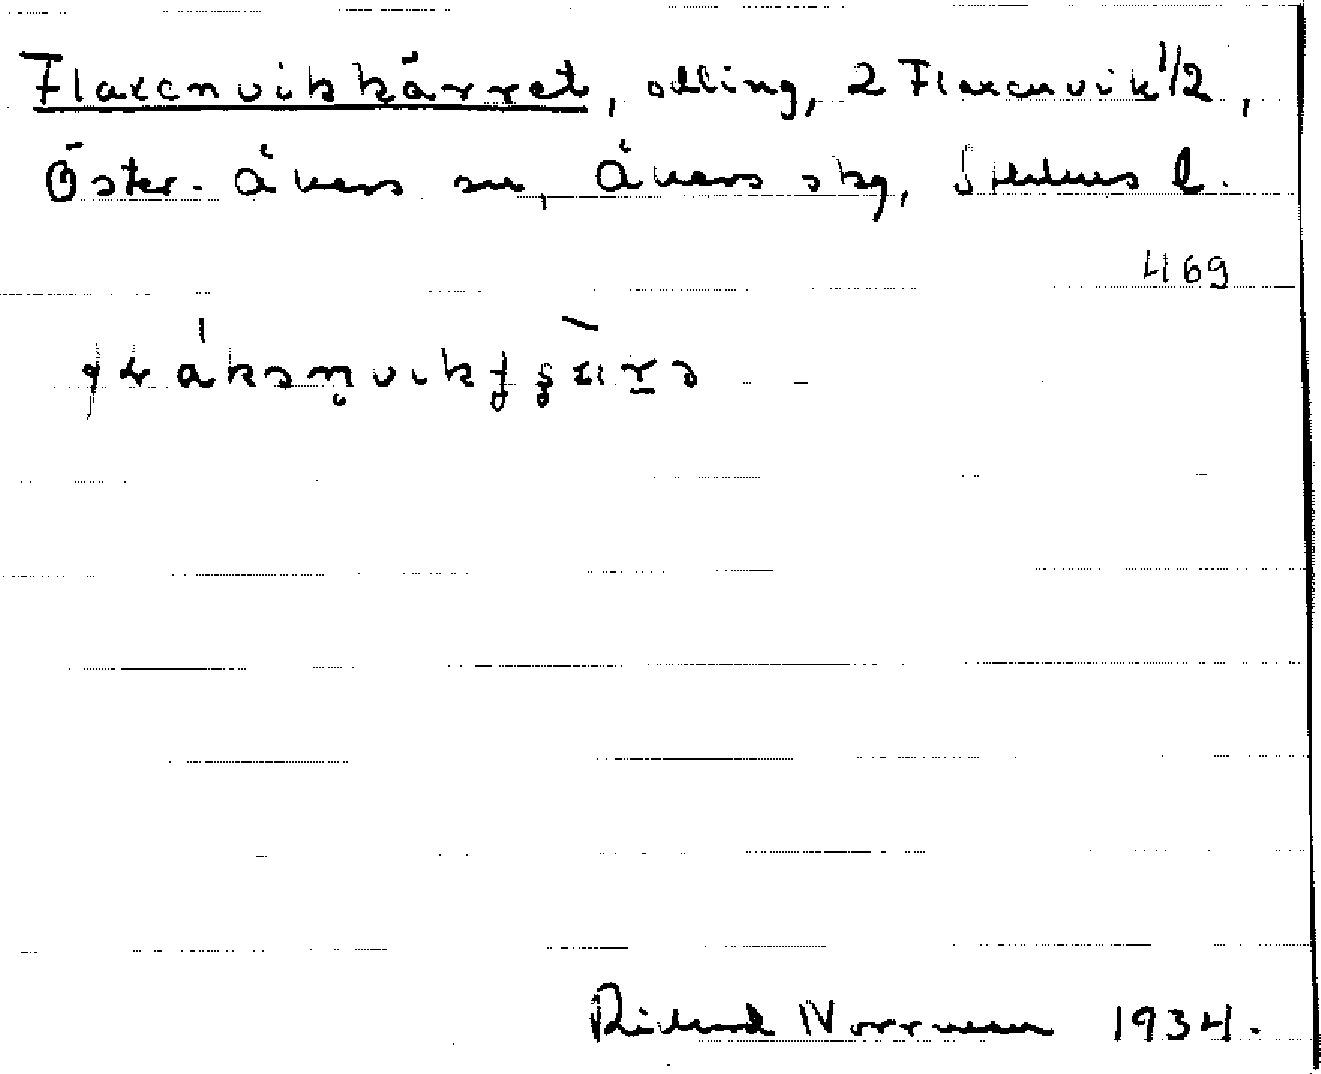 Flaxenvikkärret, odling, 2 Flaxenvik 1/2,
Öster-Åkers sn, Åkers skg, Sthlms l.
469
Rickard Norrman 1934.